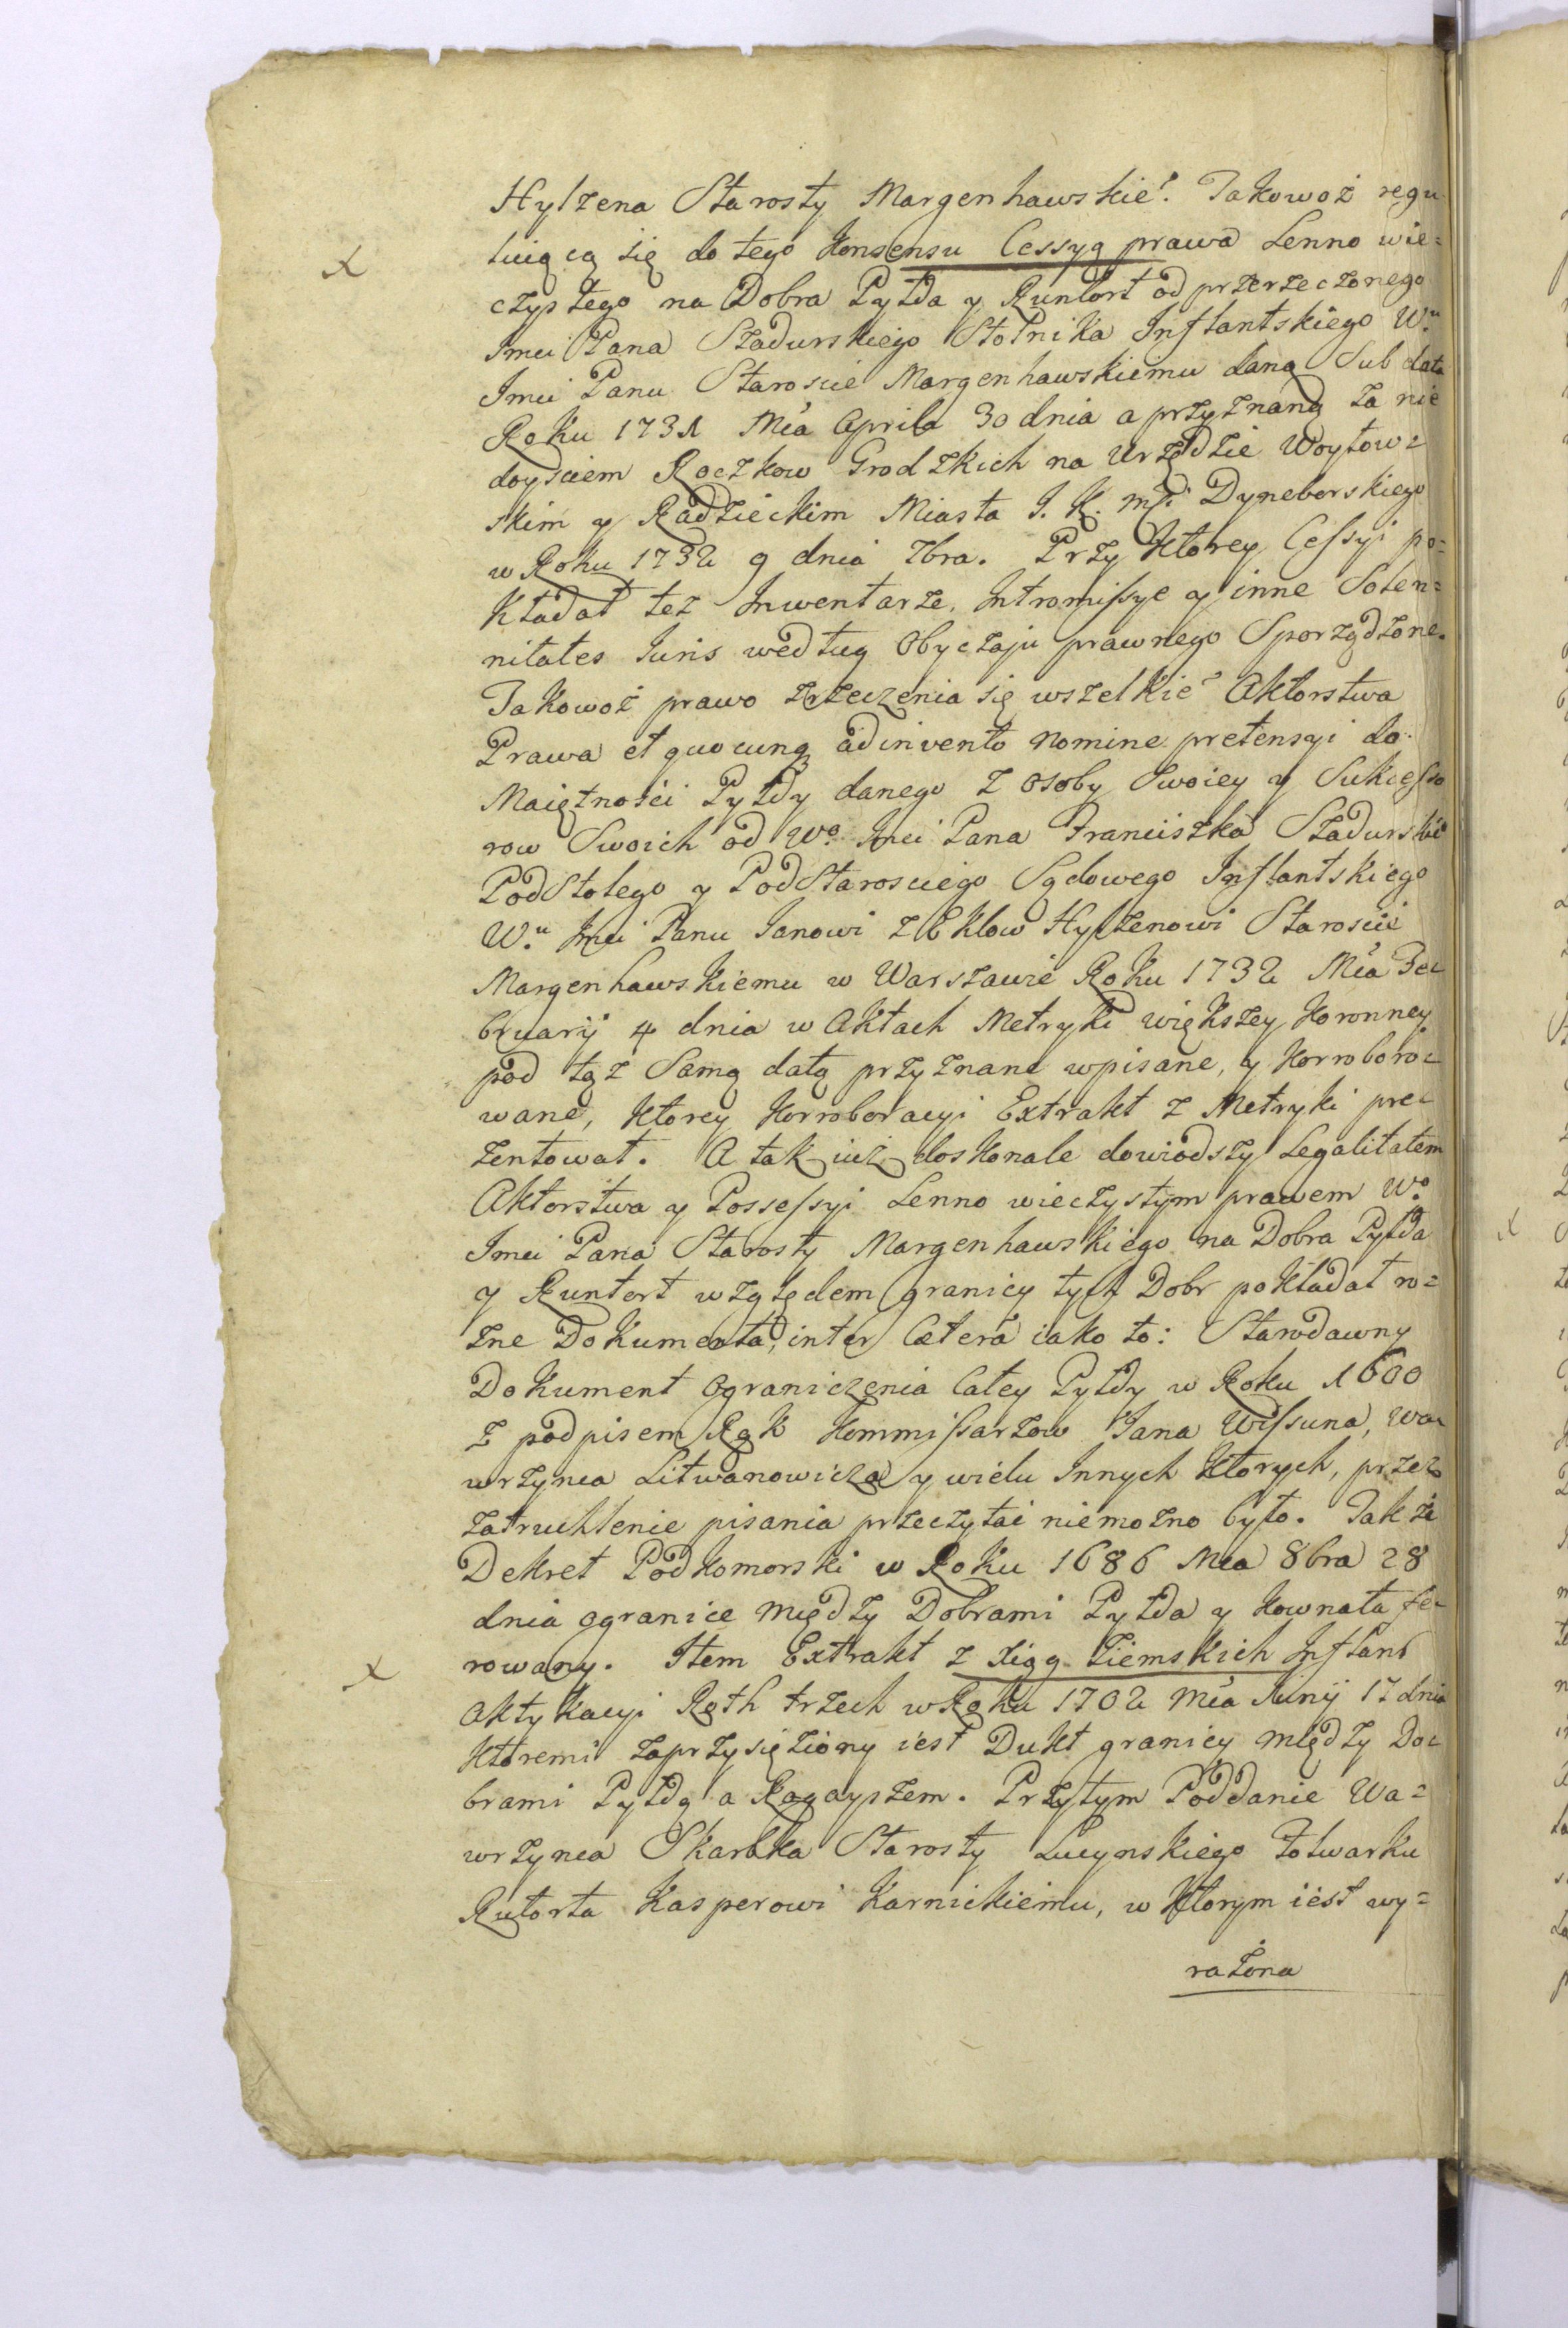 Hylzena Starosty Margenhawskie? Takowoż regu
luiącą się do tego Konsensu Cessyą prawa Lenno wie=
czystego na Dobra Pyłda y Runtort od przerzeczonego
Imci Pana Szadurskiego Stolnika Inflantskiego W.u
Imci Panu Staroscie Margenhawskiemu daną Sub data
Roku 1731 Mca Aprila 30 dnia a przyznaną za nie
doysciem Roczkow Grodzkich na Urzędzie Woytow=
skim y Radzieckim Miasta J. K. Mci Dyneborskiego
w Roku 1732 9 dnia Xbra. Przy ktorey Cessyi po=
kładał też Inwentarze, Intromissye y inne Solen=
nitates Iuris według Obyczaju prawnego Sporządzone.
Takowoż prawo zrzeczenia się wszelkie? Aktorstwa
Prawa et quocunq adinvento nomine pretensyi do
Maiętności Pyłdy danego z osoby Swoiey y Sukcesso
row Swoich od W.o Imci Pana Franciszka Szadurskie
PodStolego y PodStarosciego Sądowego Inflantskiego
W.u Imci Panu Janowi z Eklow Hylzenowi Staroscie
Margenhawskiemu w Warszawie Roku 1732 Mca Fe=
bruarij 4 dnia w Aktach Metryki większey Koronney
pod tąż Samą datą przyznane wpisane, y Korroboro=
wane, Ktorey Korroboracyi Extrakt z Metryki pre=
zentował. A tak iuż doskonale dowiodszy Legalitatem
Aktorstwa y Possessyi Lenno wieczystym prawem W.o
Imci Pana Starosty Margenhawskiego na Dobra Pyłda
y Runtort względem granicy tych Dobr pokładał ro=
zne Dokumenta, inter Cætera iako to: Starodawny
Dokument Ograniczenia Całey Pyłdy w Roku 1600
z podpisem Rąk Kommissarzow Jana Wissuna, Wa=
wrzynca Litwanowicza y wielu Innych ktorych, przez
zatruchlenie pisania przeczytać niemożno było. Także
Dekret Podkomorski w Roku 1686 Mca 8bra 28
dnia ogranice między Dobrami Pyłda y Kownata fe=
rowany. Item Extrakt z Xiąg Ziemskich Inflant
Aktykacyi Roth trzech w Roku 1702 Mca Iunij 17 dnia
Ktoremi zaprzysiężiony iest Dukt granicy między Do=
brami Pyłdą a Ragayszem. Przytym Poddanie Wa=
wrzynca Skarbka Starosty Lucynskiego Folwarku
Rutorta Kasperowi Karnickiemu, w Ktorym iest wy=
rażona
x
x
x